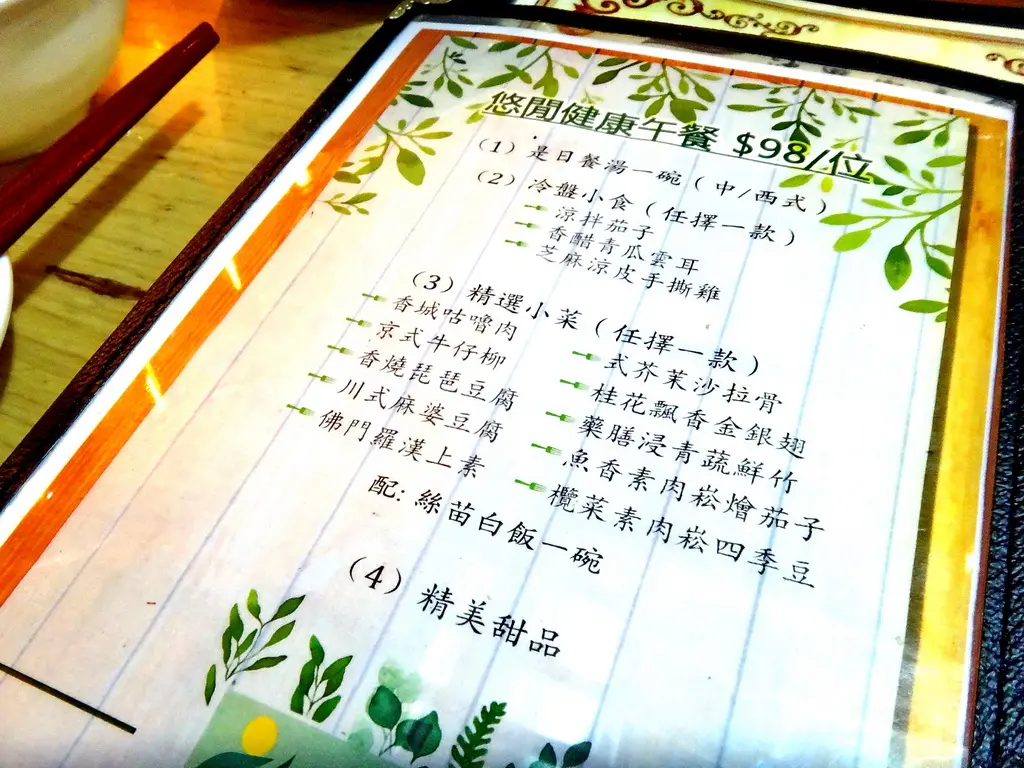 悠閒健康午餐 $98/位
(1) 是日餐湯一碗 (中/西式)
(2) 冷盤小食 (任擇一款)
涼拌茄子
香醋青瓜雲耳
芝麻涼皮手撕雞
(3) 精選小菜 (任擇一款)
香城咕嚕肉
京式牛仔柳
香燒琵琶豆腐
川式麻婆豆腐
佛門羅漢上素
式芥茉沙拉骨
桂花飄香金銀翅
藥膳浸青蔬鮮竹
魚香素肉崧燴茄子
欖菜素肉崧四季豆
配: 絲苗白飯一碗
(4) 精美甜品